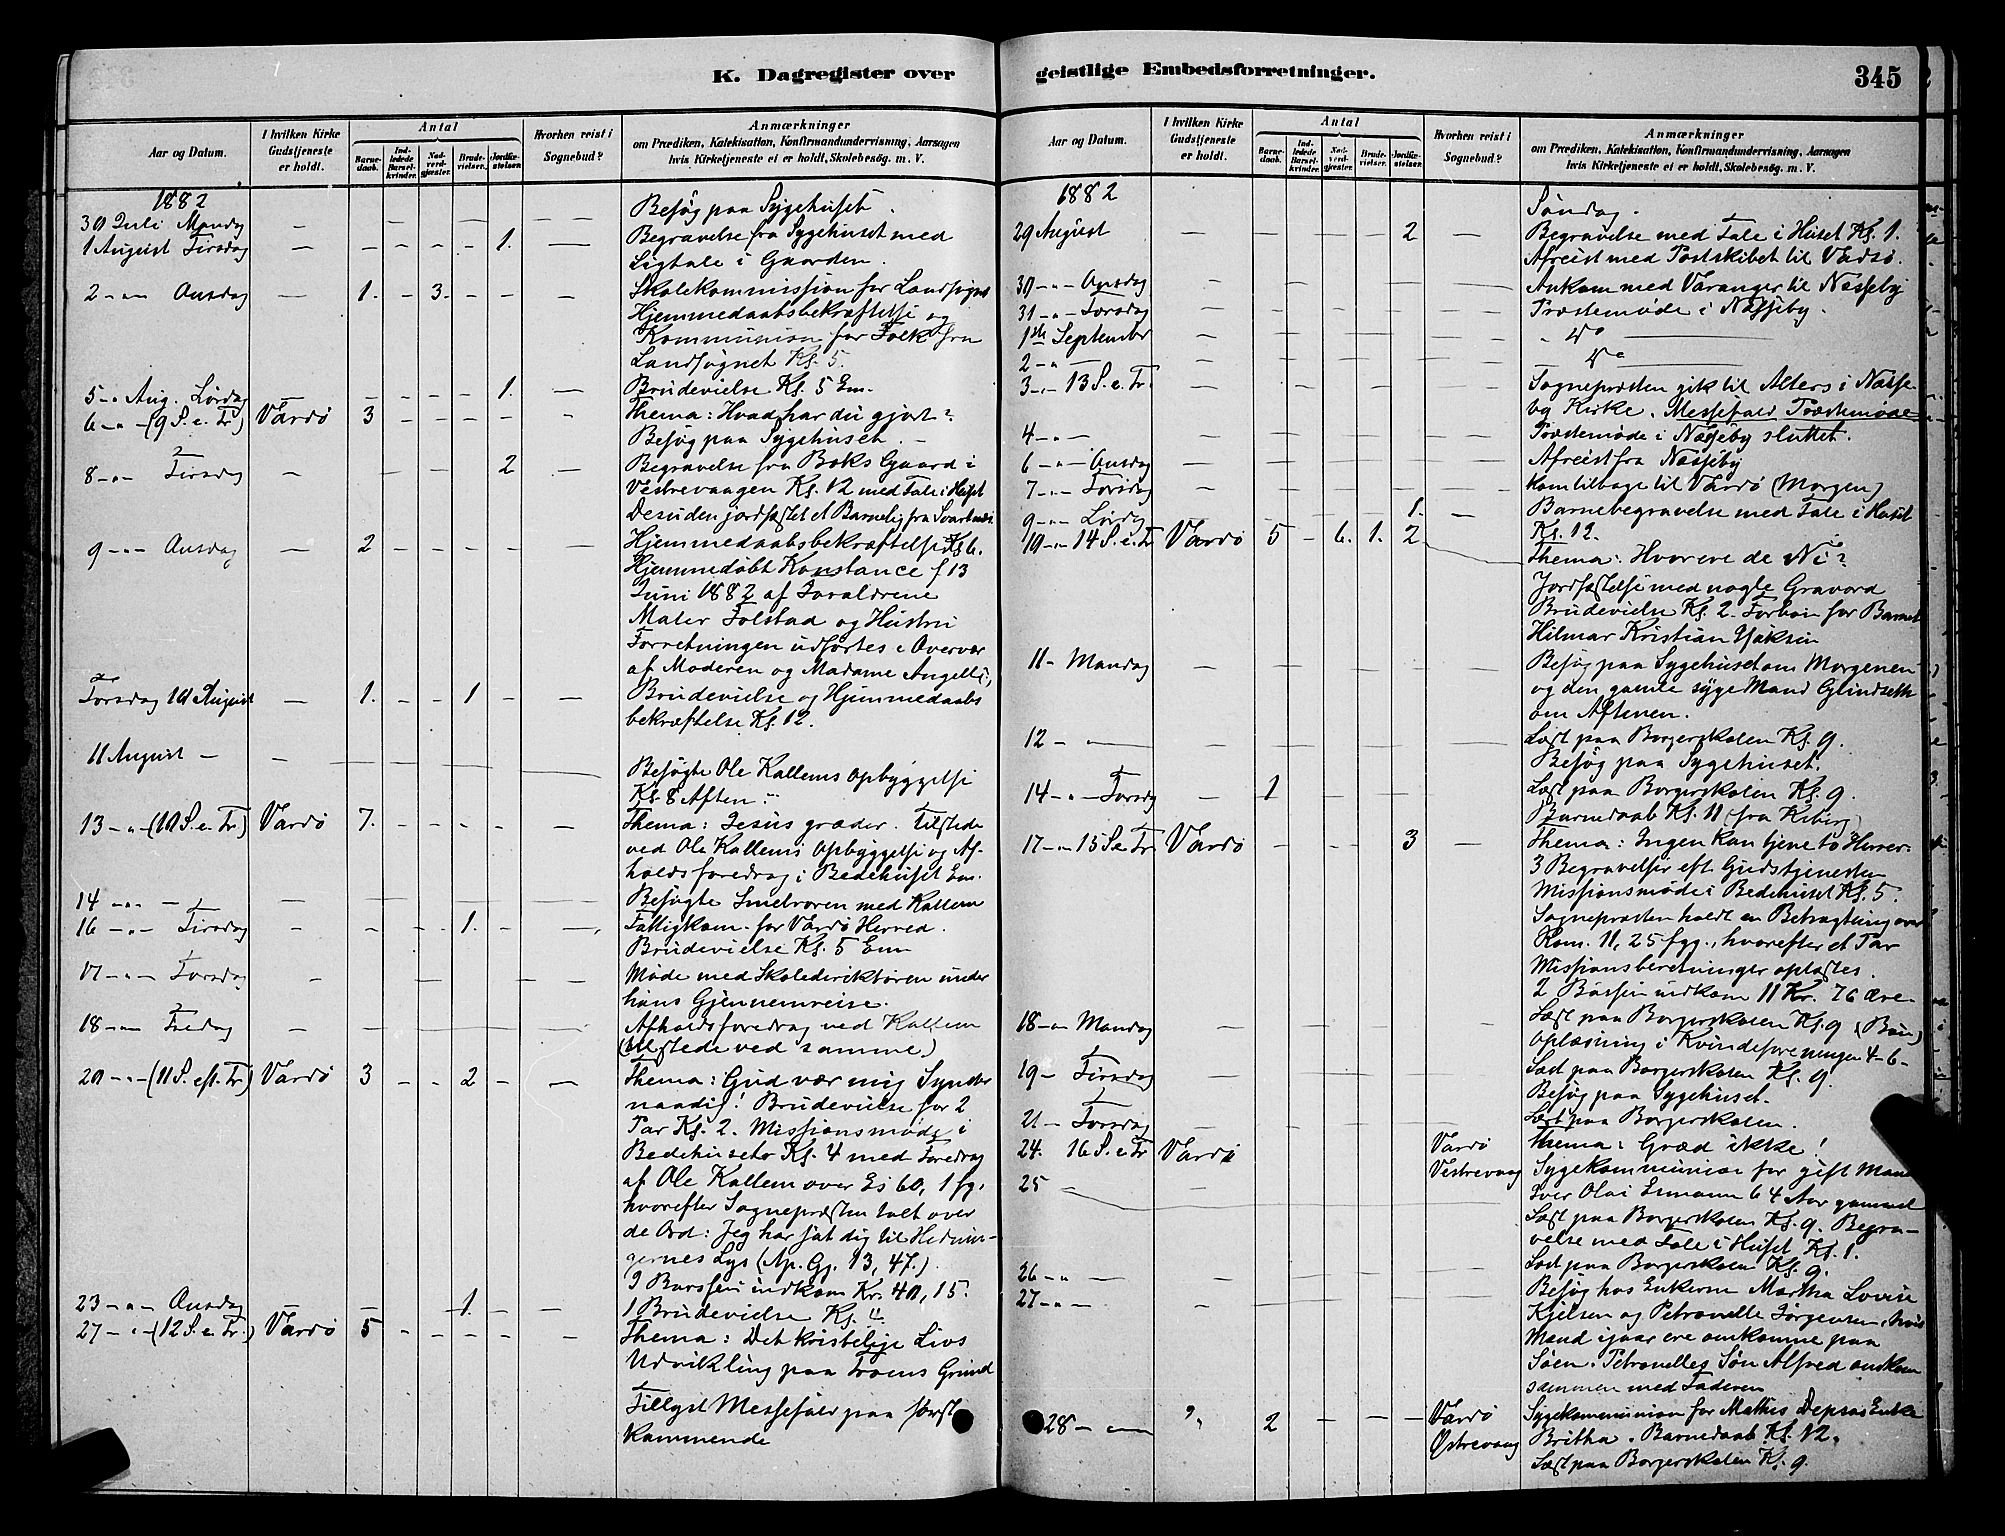 K. Dagregister over
Aar og Datum.
I hvilken Kirke Gudstjeneste er holdt.
Antal
Barne-daab.
Ind-ledede Barsel-kvinder.
Nad-verd-gjæster.
Brude-vielser.
Jordfæ-stelser.
Hvorhen reist i Sognebud?
Anmærkninger
om Prædiken, Katekisation, Konfirmandundervisning, Aarsagen
hvis Kirketjeneste ei er holdt, Skolebesøg. m. V.
1882
30 Juli Mandag — — — — — — Besøg paa Sygehuset.
1 August Tirsdag — — — — — 1. — Begravelse fra Sygehuset med
Ligtale i Gaarden.
2 -"- Onsdag — 1. — 3. — — — Skolekommission for Landsognet
Hjemmedaabsbekræftelse og
Kommunion for Folk fra
Landsognet Kl. 5.
5 -"- Aug. Lørdag — — — — — 1. — Brudevielse Kl. 5 Em.
6 -"- (9 S. e. Tr.) Vardø 3 — — — — - Thema: Hvad har du gjort?
Besøg paa Sygehuset. —
8 -"- Tirsdag — — — — 2 — Begravelse fra Boks Gaard i
Vestrevaagen Kl. 12 med Tale i Huset
Desuden jordfæstet et Barnelig fra Svartnæs.
9 -"- Onsdag — 2 — — — — — Hjemmedaabsbekræftelse Kl. 6.
Hjemmedøbt Konstance f 13
Juni 1882 af Forældrene
Maler Folstad og Hustru
Forretningen udførtes i Overvær
af Moderen og Madame Angell
Torsdag 10 August — 1. — — 1 — — Brudevielse og Hjemmedaabs
bekræftelse Kl. 12.
11 August — — — — — — — Besøgte Ole Kallems Opbyggelse
Kl. 8 Aften
13 -"- (10 S. e. Tr.) Vardø 7. — — — — — Thema: Jesus græder. Tilstede
ved Ole Kallems Opbyggelse og Af-
holdsforedrag i Bedehuset Em.
14 -"- — — — — — — — Besøgte med Kallem
16 -"- Tirsdag — — — — 1. — — Fattigkom. for Vardø Herred.
Brudevielse Kl. 5 Em
17 -"- Torsdag — — — — — — Møde med Skoledirektøren under
hans Gjennemreise.
18 -"- Fredag — — — — — — Afholdsforedrag ved Kallem
(tilstede ved samme)
20 -"- (11 S. eft. Tr.) Vardø 3 — — 2 — — Thema: Gud vær mig Synder
naadig! Brudevielse for 2
Par Kl. 2. Missionsmøde i
Bedehuset Kl. 4 med Foredrag
af Ole Kallem over Es 60, 1 fg.
hvorefter Sognepræsten talt over
de Ord: Jeg har sat dig til Hednin-
gernes Lys (Ap. Gj. 13, 47.)
I Bøssen indkom Kr. 40, 15.
23 -"- Onsdag — — 1. — — 1 Brudevielse Kl.
27 -"- (12 S. e. Tr.) Vardø 5 — — — — — Thema: Det kristelige Livs
Udvikling paa Troens Grund
Tillyst Messefald paa først
kommende
geistlige Embedsforretninger.
345
Aar og Datum.
I hvilken Kirke Gudstjeneste er holdt.
Antal
Barne-daab.
Ind-ledede Barsel-kvinder.
Nad-verd-gjæster.
Brude-vielser.
Jordfæ-stelser.
Hvorhen reist i Sognebud?
Anmærkninger
om Prædiken, Katekisation, Konfirmandundervisning, Aarsagen
hvis Kirketjeneste ei er holdt, Skolebesøg. m. V.
1882 Søndag.
29 August — — — — — 2 — Begravelse med Tale i Huset Kl. 1.
Afreist med Postskibet til Vadsø.
30 -"- Onsdag — — — — — — Ankom med Varanger til Næsseby
31 -"- Torsdag — — — — — — Præstemøde i Næsseby.
1ste September — — — — — — " do —
2 -"- — — — — — — do —
3 -"- 13 S. e. Tr. — — — — — — Sognepræsten gik til Alters i Næsse-
by Kirke. Messefald Præstemøde
4 -"- — — — — — — Præstemøde i Næsseby sluttet.
6 -"- Onsdag — — — — — — Afreist fra Næsseby
7 -"- Torsdag — — — — — — Kom tilbage til Vardø (Morgen)
9 -"- Lørdag — — — — 1. — Barnebegravelse med Tale i Huset
Kl. 12.
10 -"- 14 S. e. Tr Vardø 5 — 6. 1. 2 — Thema: Hvor ere de Ni?
Jordfæstelse med nogle Gravord
Brudevielse Kl. 2. Forbøn for Barnet
Hilmar Kristian
11 - Mandag — — — — — — Besøg paa Sygehuset om Morgenen
og den gamle syge Mand Grindseth
om Aftenen.
12 - — — — — — — Læst paa Borgerskolen Kl. 9.
Besøg paa Sygehuset.
14 -"- Torsdag — 1 — — — — Læst paa Borgerskolen Kl. 9.
Barnedaab Kl. 11 (fra Kiberg)
17 -"- 15 S. e Tr Vardø — — — 3 — Thema: Ingen kan tjene to Herrer.
3 Begravelser eft. Gudstjenesten
Missionsmøde i Bedehuset Kl. 5.
Sognepræsten holdt en Betragtning over
Rom. 11, 25 fgg., hvorefter et Par
Missionsberetninger oplæstes.
I Bøssen indkom 11 Kr. 76 Øre.
18 -"- Mandag — — — — Læst paa Borgerskolen Kl. 9 (Bøn)
Oplæsning i Kvindeforeningen 4-6.
19 - Tirsdag — — — — Læst paa Borgerskolen Kl. 9.
Besøg paa Sygehuset.
21 - Torsdag — — — — Læst paa Borgerskolen.
24. 16 S. e Tr Vardø Vardø Thema: Græd ikke!
25 — — Vestrevaag Sygekommunion for gift Mand
Iver Olai 64 Aar gammel
Læst paa Borgerskolen Kl. 9. Begra-
velse med Tale i Huset Kl. 1.
26 -"- — — — — Læst paa Borgerskolen Kl. 9.
27 -"- — — — — Besøg hos Enkerne Martha Lovise
Kjelsen og Petronelle Jørgensen, hvis
Mænd igaar ere omkomne paa
Søen. Petronelles Søn Alfred omkom
sammen med Faderen
28 -"- " 2 — — — Vardø Sygekommunion for Mathis Enke
Østrevaag Britha. Barnedaab Kl. 12.
Læst paa Borgerskolen Kl. 9